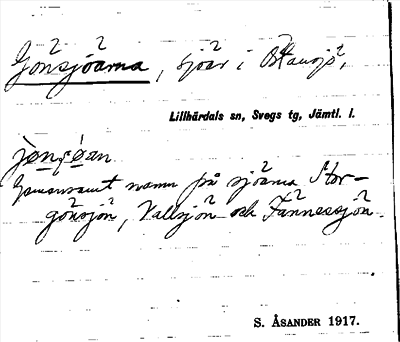 Gönsjöarna, sjöar i
Lillhärdals sn, Svegs tg, Jämtl. l.
Gemensamt namn på sjöarna Stor-
gönsjön, Vallsjön och Fännessjön.
S. ÅSANDER 1917.